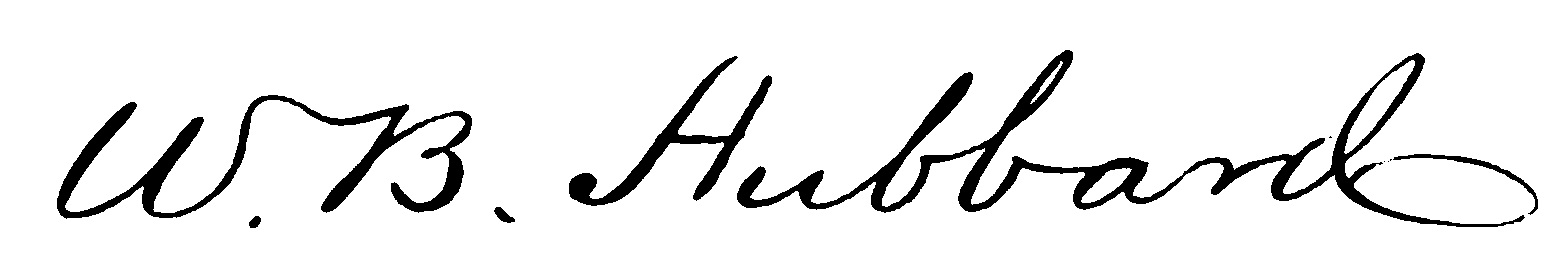 W. B. Hubbard